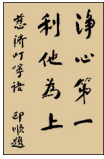 淨心第一
利他為上
慈濟叮嚀語
印順題